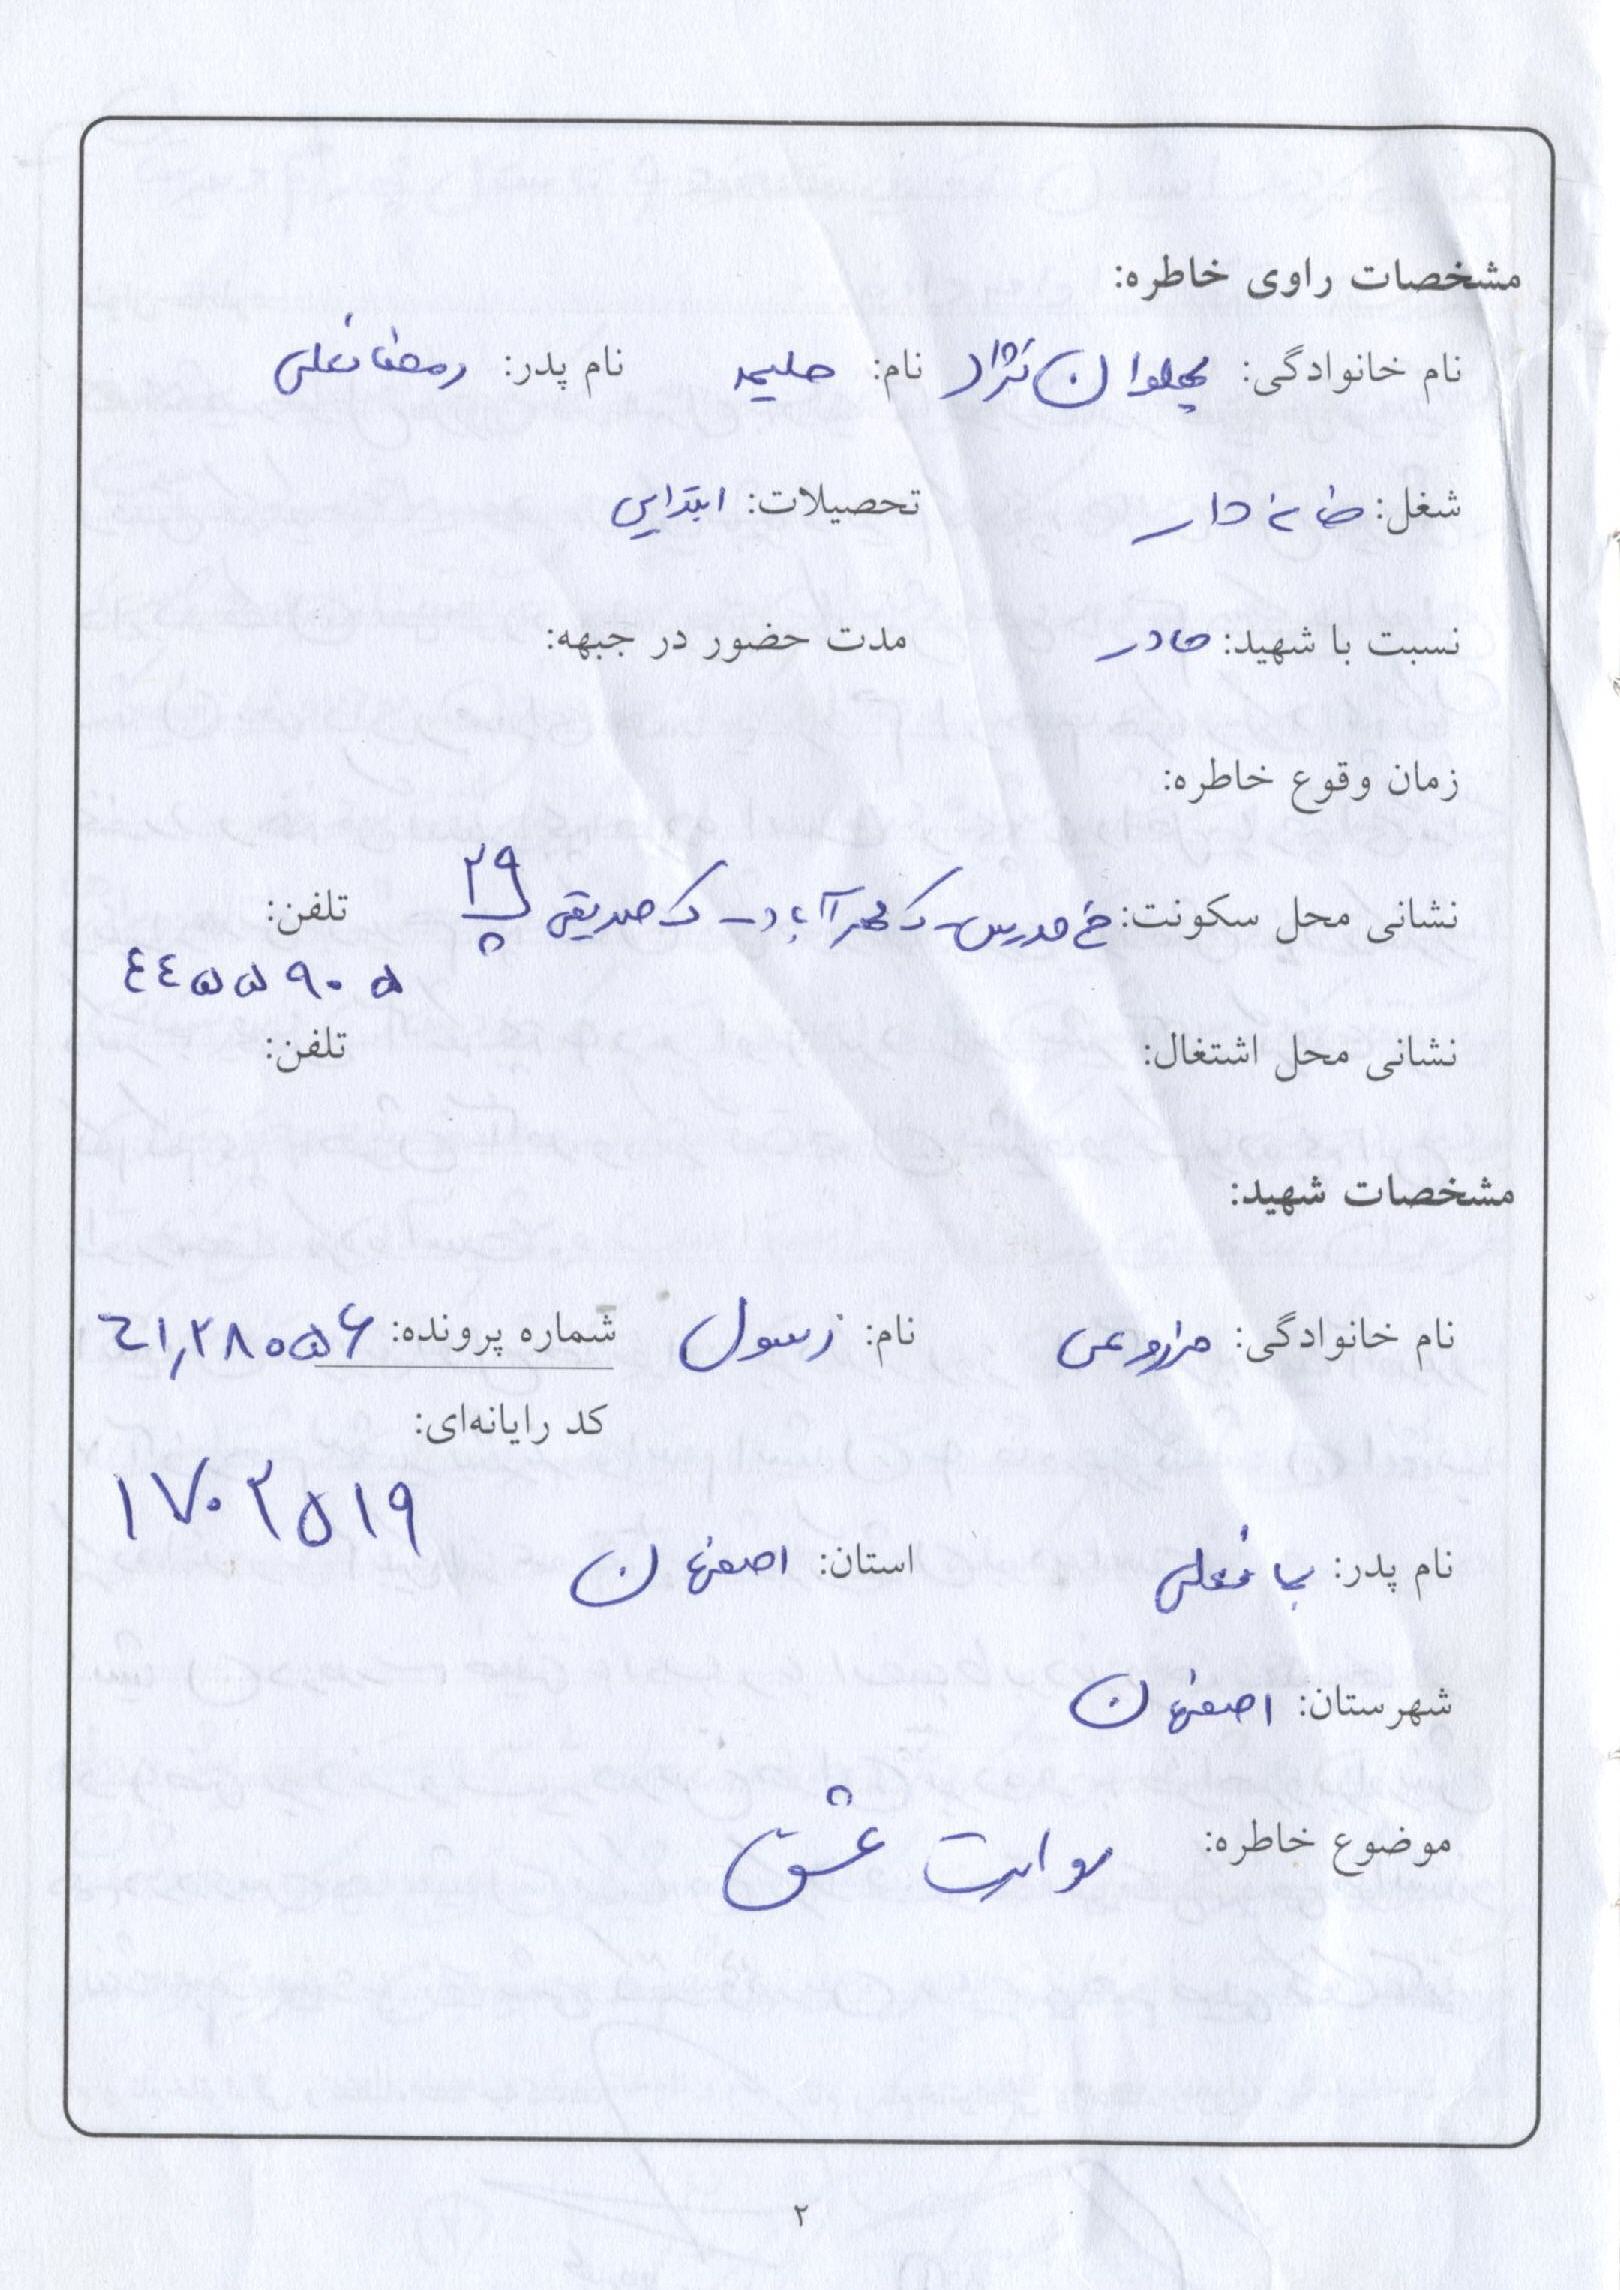 مشخصات راوی خاطره:
نام خانوادگی: پهلوان نژاد نام: حلیمه نام پدر: رمضانعلی
شغل: خانه دار تحصیلات: ابتدایی
نسبت با شهید: مادر مدت حضور در جبهه:
زمان وقوع خاطره:
نشانی محل سکونت: خ مدرس - ک مهرآباد - ک صدیقی پ ۲۹ تلفن:
۴۴۵۵۹۰۵
نشانی محل اشتغال: تلفن:
مشخصات شهید:
نام خانوادگی: مزروعی نام: رسول شماره پرونده: ۶۱٫۲۸۰۵۵۶
کد رایانه‌ای:
۱۷۰۲۵۱۹
نام پدر: رجبعلی استان: اصفهان
شهرستان: اصفهان
موضوع خاطره: عشق
۲